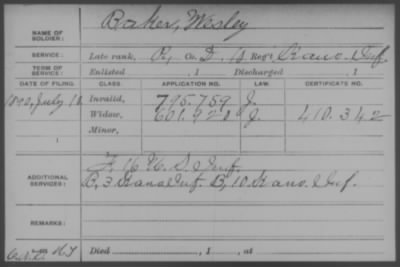 NAME OF SOLDIER: Baker, Wesley
SERVICE: Late rank, Co. D, 10 Reg't Kans. Inf.
TERM OF SERVICE: Enlisted , 1 Discharged , 1
DATE OF FILING. CLASS. APPLICATION NO. LAW. CERTIFICATE NO.
1890, July 18. Invalid, 795.759 J.
Widow, 601.920 J. 410.342
Minor,
1
ADDITIONAL SERVICES: F, 16 U.S. Inf.
B, 3 Kans Inf. B, 10 Kans. Inf.
REMARKS:
Died , 1 , at